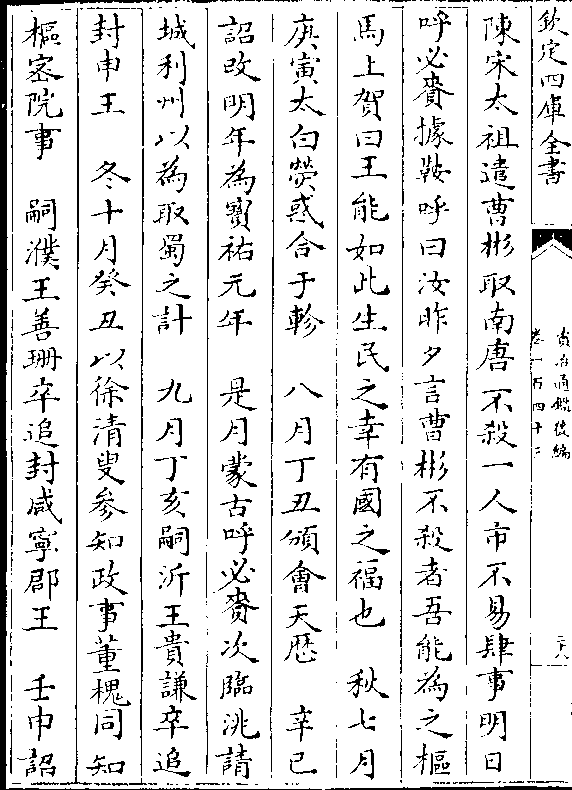 欽定四庫全書
資治通鑑後編
卷一百四十三
二十八
陳宋太祖遣曹彬取南唐不殺一人市不易肆事明日
呼必賚據鞍呼曰汝昨夕言曹彬不殺者吾能為之樞
馬上賀曰王能如此生民之幸有國之福也 秋七月
庚寅太白熒惑合于軫 八月丁丑頒會天歴 辛已
詔改明年為寳祐元年 是月蒙古呼必賚次臨洮請
城利州以為取蜀之計 九月丁亥嗣沂王貴謙卒追
封申王 冬十月癸丑以徐清叟參知政事董槐同知
樞宻院事 嗣濮王善珊卒追封咸寧郡王 壬申詔